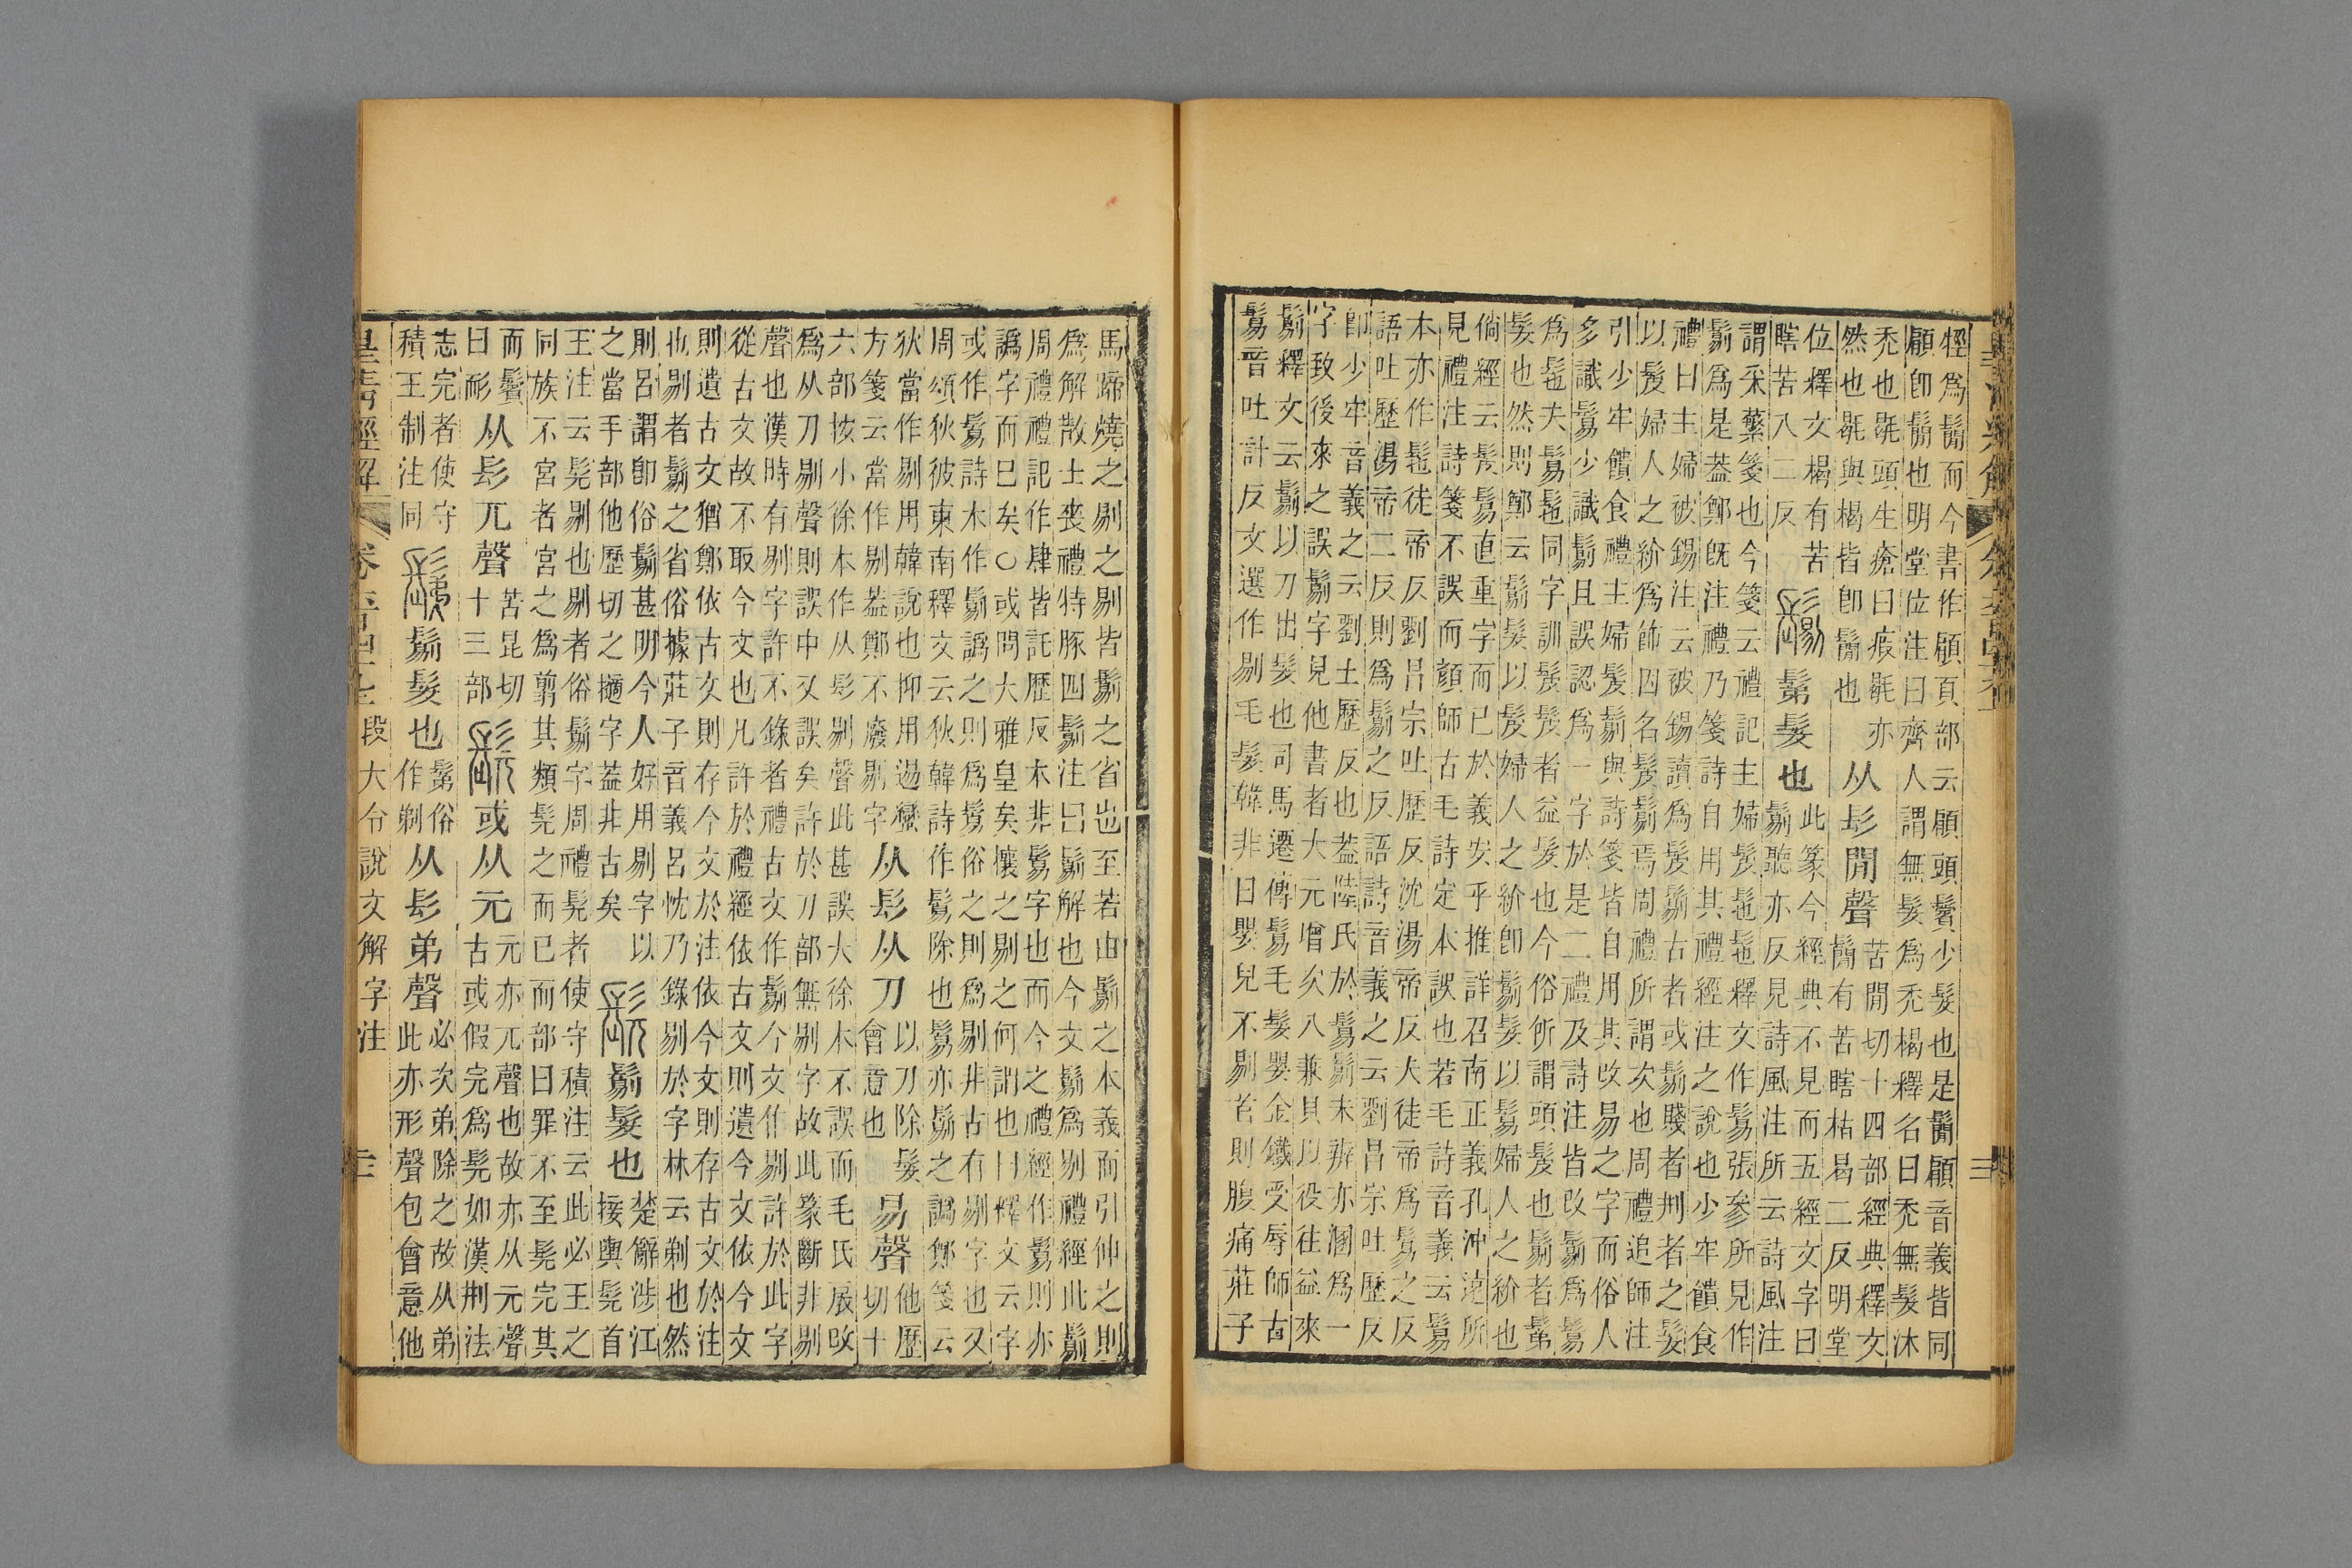 㹂爲鬜而今書作顅頁部云顅頭鬢少髮也是鬜顅音義皆同
顅卽鬜也明堂位注曰齊人謂無髮爲禿楬釋名曰禿無髮沐
禿也毼頭生瘡曰瘕毼亦
然也毼與楬皆卽鬜也
从髟閒聲
苦閒切十四部經典釋文
鬜有苦瞎枯曷二反明堂
位釋文楬有苦
瞎苦八二反
鬄
髲也
此篆今經典不見而五經文字曰
𩮜聽亦反見詩風注所云詩風注
謂采蘩箋也今箋云禮記主婦髲髢髢釋文作鬄張參所見作
𩮜爲是葢鄭旣注禮乃箋詩自用其禮經注之說也少牢饋食
禮曰主婦被錫注云被錫讀爲髲𩮜古者或𩮜賤者刑者之髮
以髲婦人之紒爲飾因名髲𩮜焉周禮所謂次也周禮追師注
引少牢饋食禮主婦髲𩮜與詩箋皆自用其改易之字而俗人
多識鬄少識𩮜且誤認爲一字於是二禮及詩注皆改𩮜爲鬄
爲髢夫鬄髢同字訓髲髲者益髮也今俗所謂頭髮也𩮜者鬀
髮也然則鄭云𩮜髮以髲婦人之紒卽𩮜髮以鬄婦人之紒也
倘經云髲鬄直重字而已於義安乎推詳召南正義孔沖遠所
見禮注詩箋不誤而顏師古毛詩定本誤也若毛詩音義云鬄
本亦作髢徒帝反劉呂宗吐歷反沈湯帝反大徒帝爲鬄之反
語吐歷湯帝二反則爲𩮜之反語詩音義之云劉昌宗吐歷反
卽少牢音義之云劉土歷反也葢陸氏於鬄𩮜未辨亦溷爲一
字致後來之誤𩮜字見他書者大元增次八兼貝以役往益來
𩮜釋文云𩮜以刀出髮也司馬遷傳鬄毛髮嬰金鐵受辱師古
鬄音吐計反文選作剔毛髮韓非曰嬰兒不剔首則腹痛莊子
馬蹄燒之剔之剔皆𩮜之省也至若由𩮜之本義而引伸之則
爲解散士喪禮特豚四𩮜注曰𩮜解也今文𩮜爲剔禮經此𩮜
周禮禮記作肆皆託歷反未非鬄字也而今之禮經作鬄則亦
譌字而已矣○或問大雅皇矣攘之剔之何謂也曰釋文云字
或作鬄詩本作𩮜譌之則爲鬄俗之則爲剔非古有剔字也又
周頌狄彼東南釋文云狄韓詩作鬄除也鬄亦𩮜之譌鄭箋云
狄當作剔用韓說也抑用逷蠻
方箋云當作剔葢鄭不廢剔字
从髟从刀
以刀除髮
會意也
易聲
他歷
切十
六部按小徐本作从髟剔聲此甚誤大徐本不誤而毛氏展改
爲从刀剔聲則誤中又誤矣許於刀部無剔字故此篆斷非剔
聲也漢時有剔字許不錄者禮古文作𩮜今文作剔許於此字
從古文故不取今文也凡許於禮經依古文則遺今文依今文
則遺古文猶鄭依古文則存今文於注依今文則存古文於注
也剔者𩮜之省俗據莊子音義呂忱乃錄剔於字林云剃也然
則呂謂卽俗𩮜甚明今人好用剔字以
之當手部他歷切之擿字葢非古矣
髡
𩮜髮也
楚辭涉江
接輿髡首
王注云髡剔也剔者俗𩮜字周禮髡者使守積注云此必王之
同族不宮者宮之爲翦其類髡之而已而部曰罪不至髡完其
而鬢
曰耏
从髟兀聲
苦昆切
十三部
或从元
元亦兀聲也故亦从元聲
古或假完爲髡如漢荆法
志完者使守
積王制注同
鬀
𩮜髮也
鬀俗
作剃
从髟弟聲
必次弟除之故从弟
此亦形聲包會意他
皇淸經解
段大令說文解字注